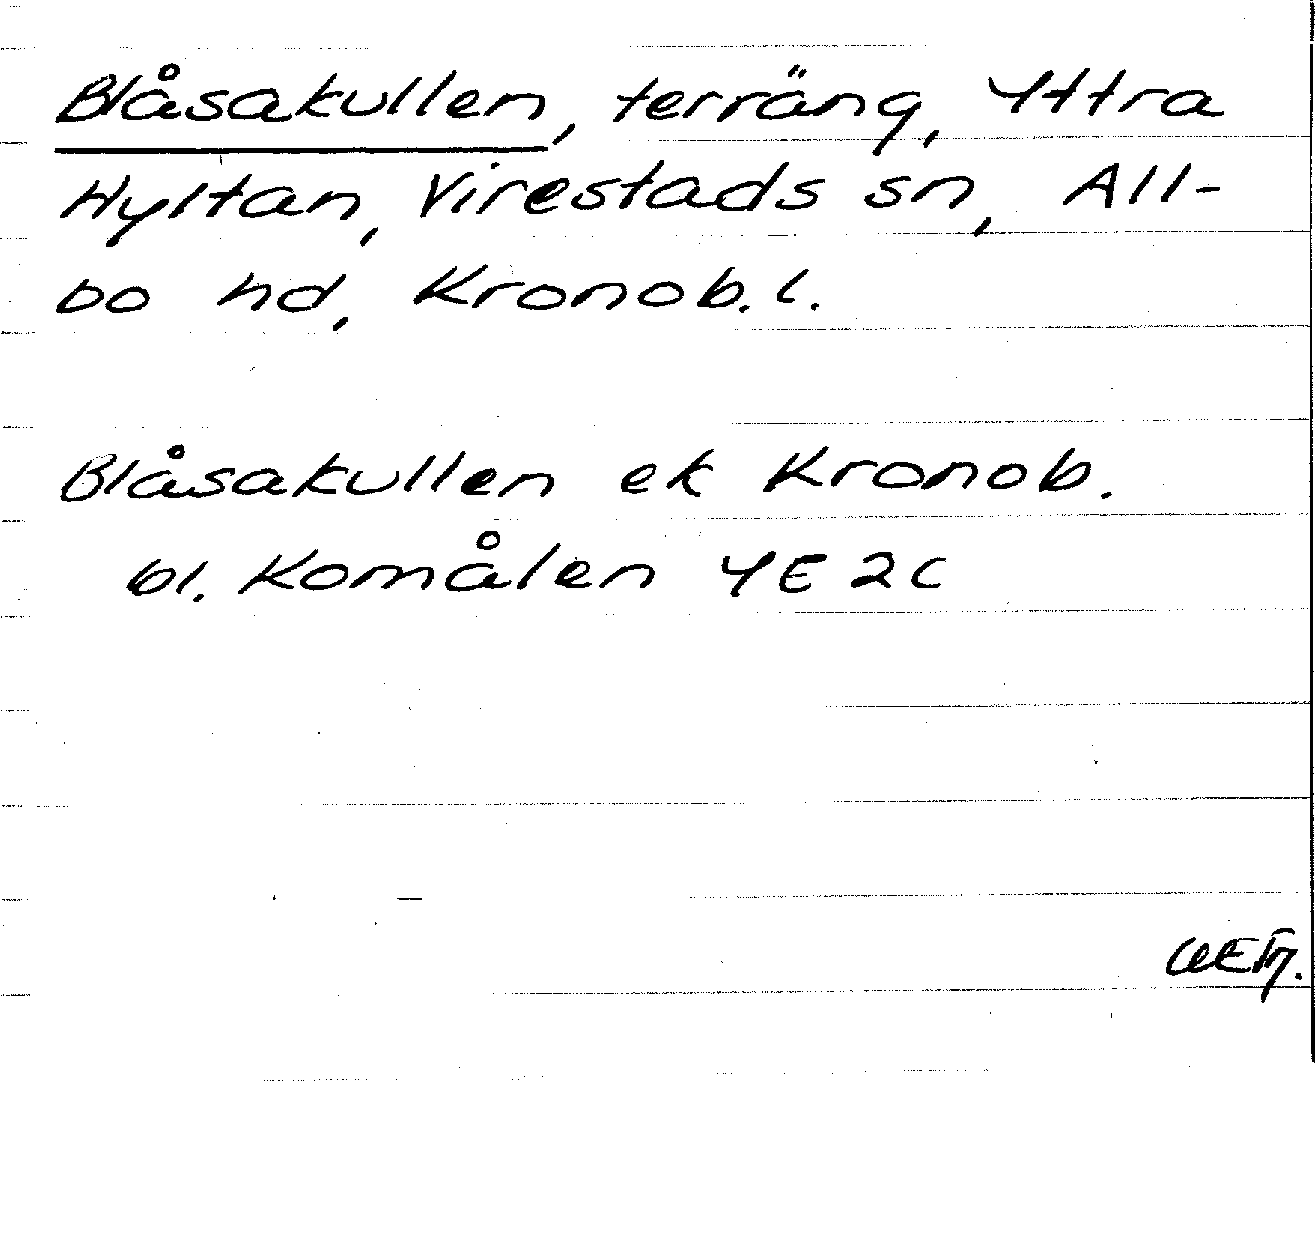 Blåsakullen, terräng, Yttra
Hyltan, Virestads sn, All-
bo hd, Kronob. l.
Blåsakullen ek Kronob.
bl. Komålen 4E 2C